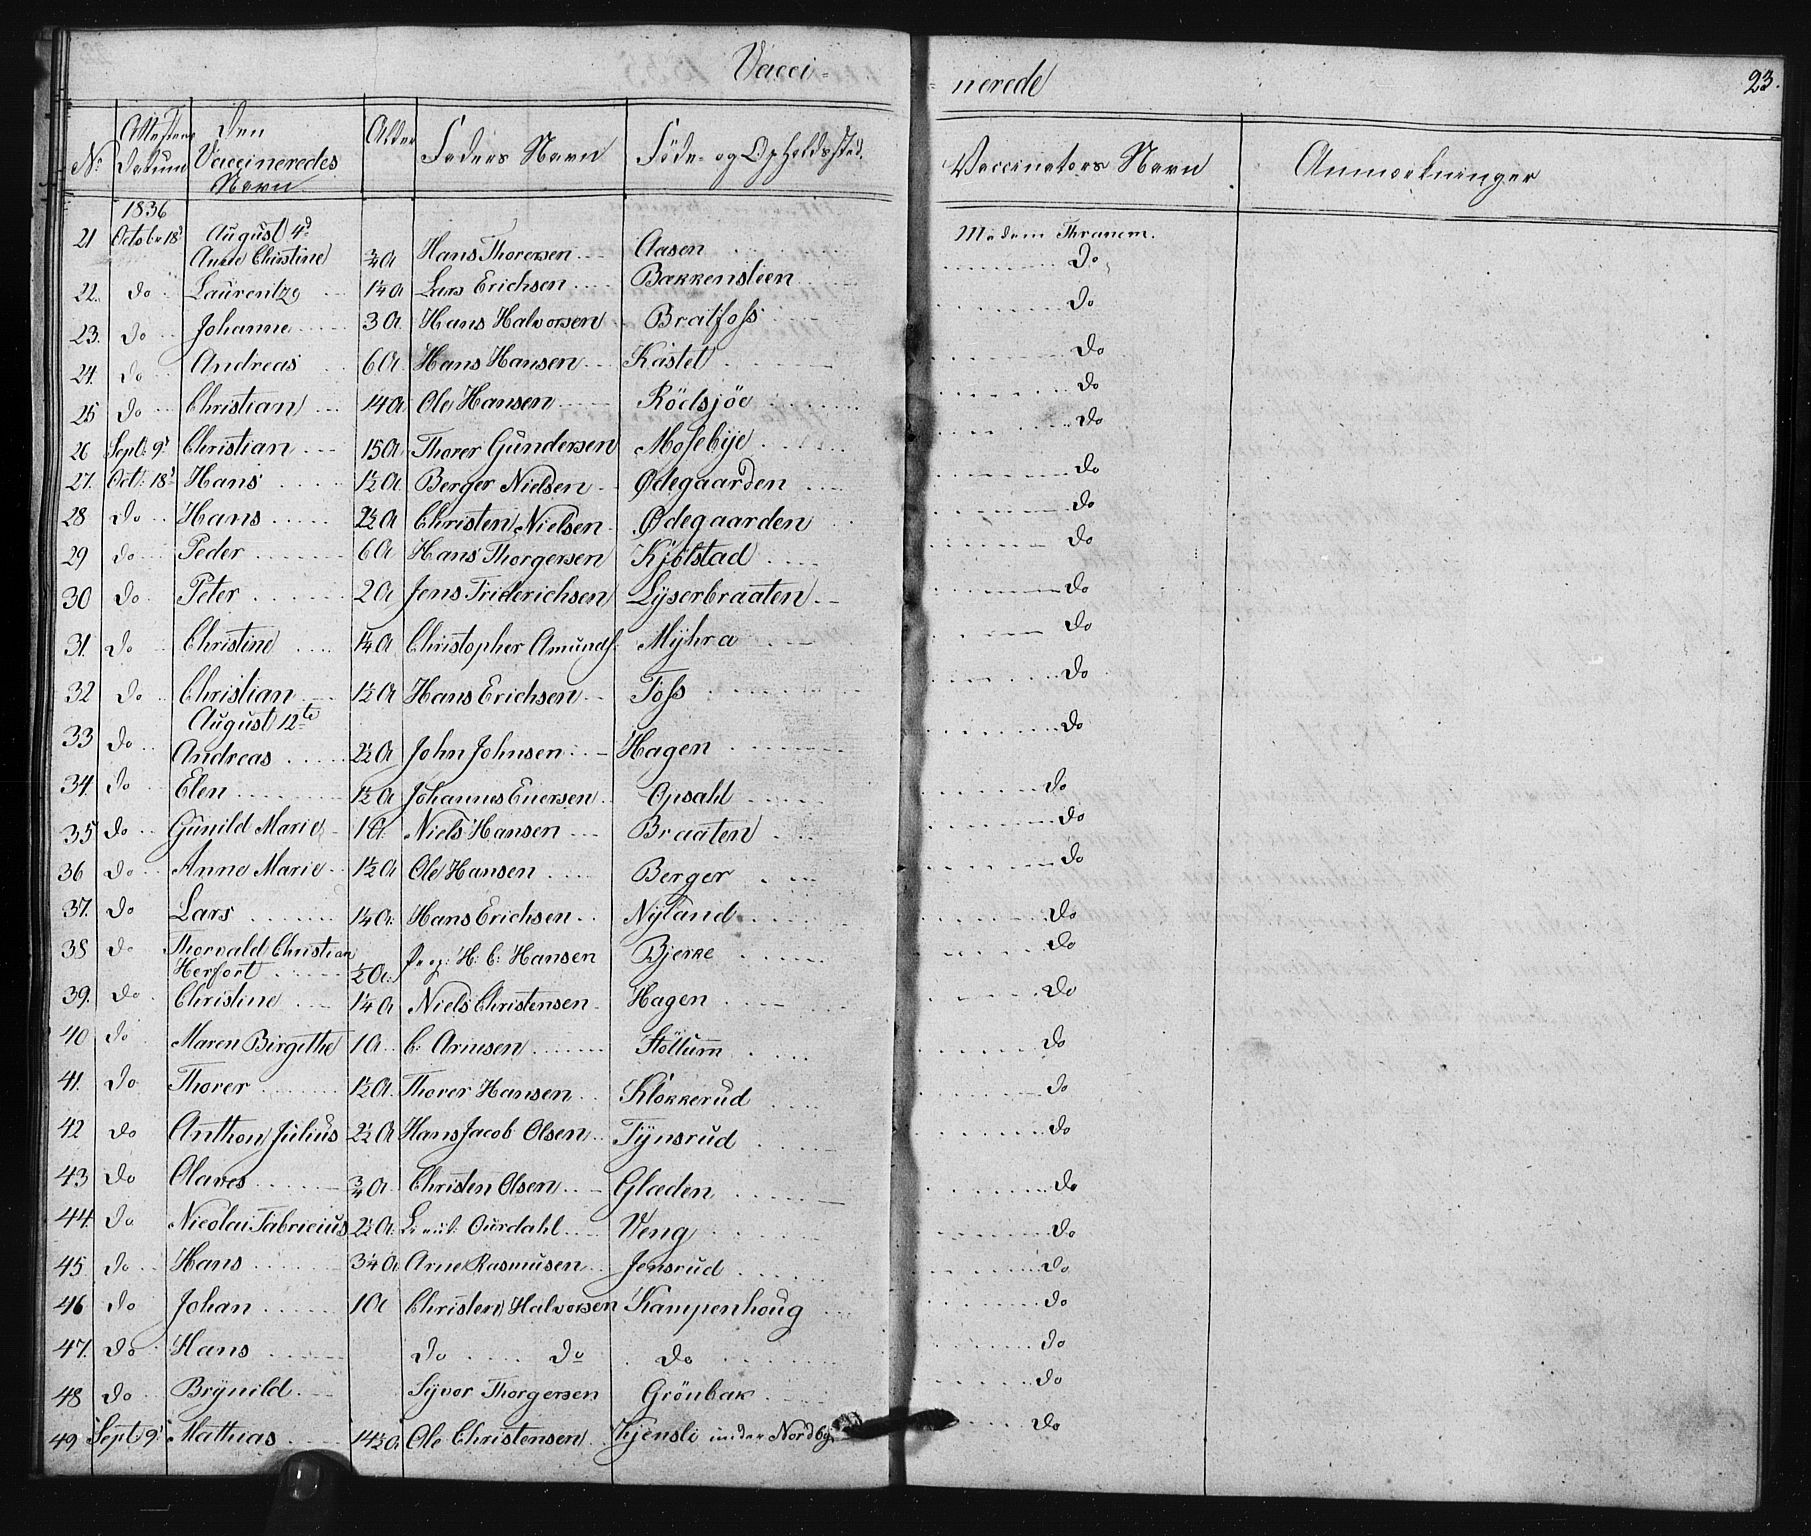 Vacci=
=nerede
23.
No
Attestens Datum
Den Vaccineredes Navn
Alder
Faders Navn
Föde- og Opholdssted.
Vaccinators Navn
Anmærkninger
1836
August 4d
21 Octobr 18d Anne Christine ¾ A Hans Thoresen Aasen Madam Thranem.
22. do Laurentze 1¼ A Lars Erichsen Bakkensteen do
23. do Johanne 3 A Hans Halvorsen Bratfoss do
24. do Andreas 6 A Hans Hansen Kastet do
25 do Christian 14 A Ole Hansen Rödsjöe do
26 Sept: 9d Christian 15 A Thorer Gundersen Mosebÿe do
27. Oct: 18d Hans 1½ A Berger Nielsen Ødegaarden do
28 do Hans 2½ A Christen Nielsen Ødegaarden do
29 do Peder 6 A Hans Thorgersen Kjölstad do
30 do Peter 2 A Jens Friderichsen Lÿserbraaten do
31. do Christine 1¼ A Christopher Amunds. Mÿhra do
32 do Christian 1½ A Hans Erichsen Foss do
August 12te
33 do Andreas 2½ A John Johnsen Hagen do
34. do Elen 1½ A Johannes Eversen Opsahl do
35 do Gunild Marie 1 A Niels Hansen Braaten do
36 do Anne Marie 1½ A Ole Hansen Berger do
37. do Lars 1¼ A Hans Erichsen Nyland do
38 do Thorvald Christian Herfort ½ A H: C: Hansen Bjerke do
39. do Christine 1¼ A Niels Christensen Hagen do
40 do Maren Birgithe 1 A C: Arnesen Stöttum do
41. do Thorer 1½ A Thorer Hansen Klokkerud do
42 do Anthon Julius 2½ A Hans Jacob Olsen Tÿnsrud do
43 do Olaves ¾ A Christen Olsen Glæden do
44. do Nicolai Fabricius 2½ A Ourdahl Veng do
45 do Hans 3¼ A Arne Rasmusen Jensrud do
46 do Johan 1 A Christen Halvorsen Kampenhoug do
47. do Hans do do do do
48 do Brÿnild Sÿvor Thorgersen Grönbak do
49 Sept 9d Mathias 14½ A Ole Christensen Kjensli under Nordbÿ do